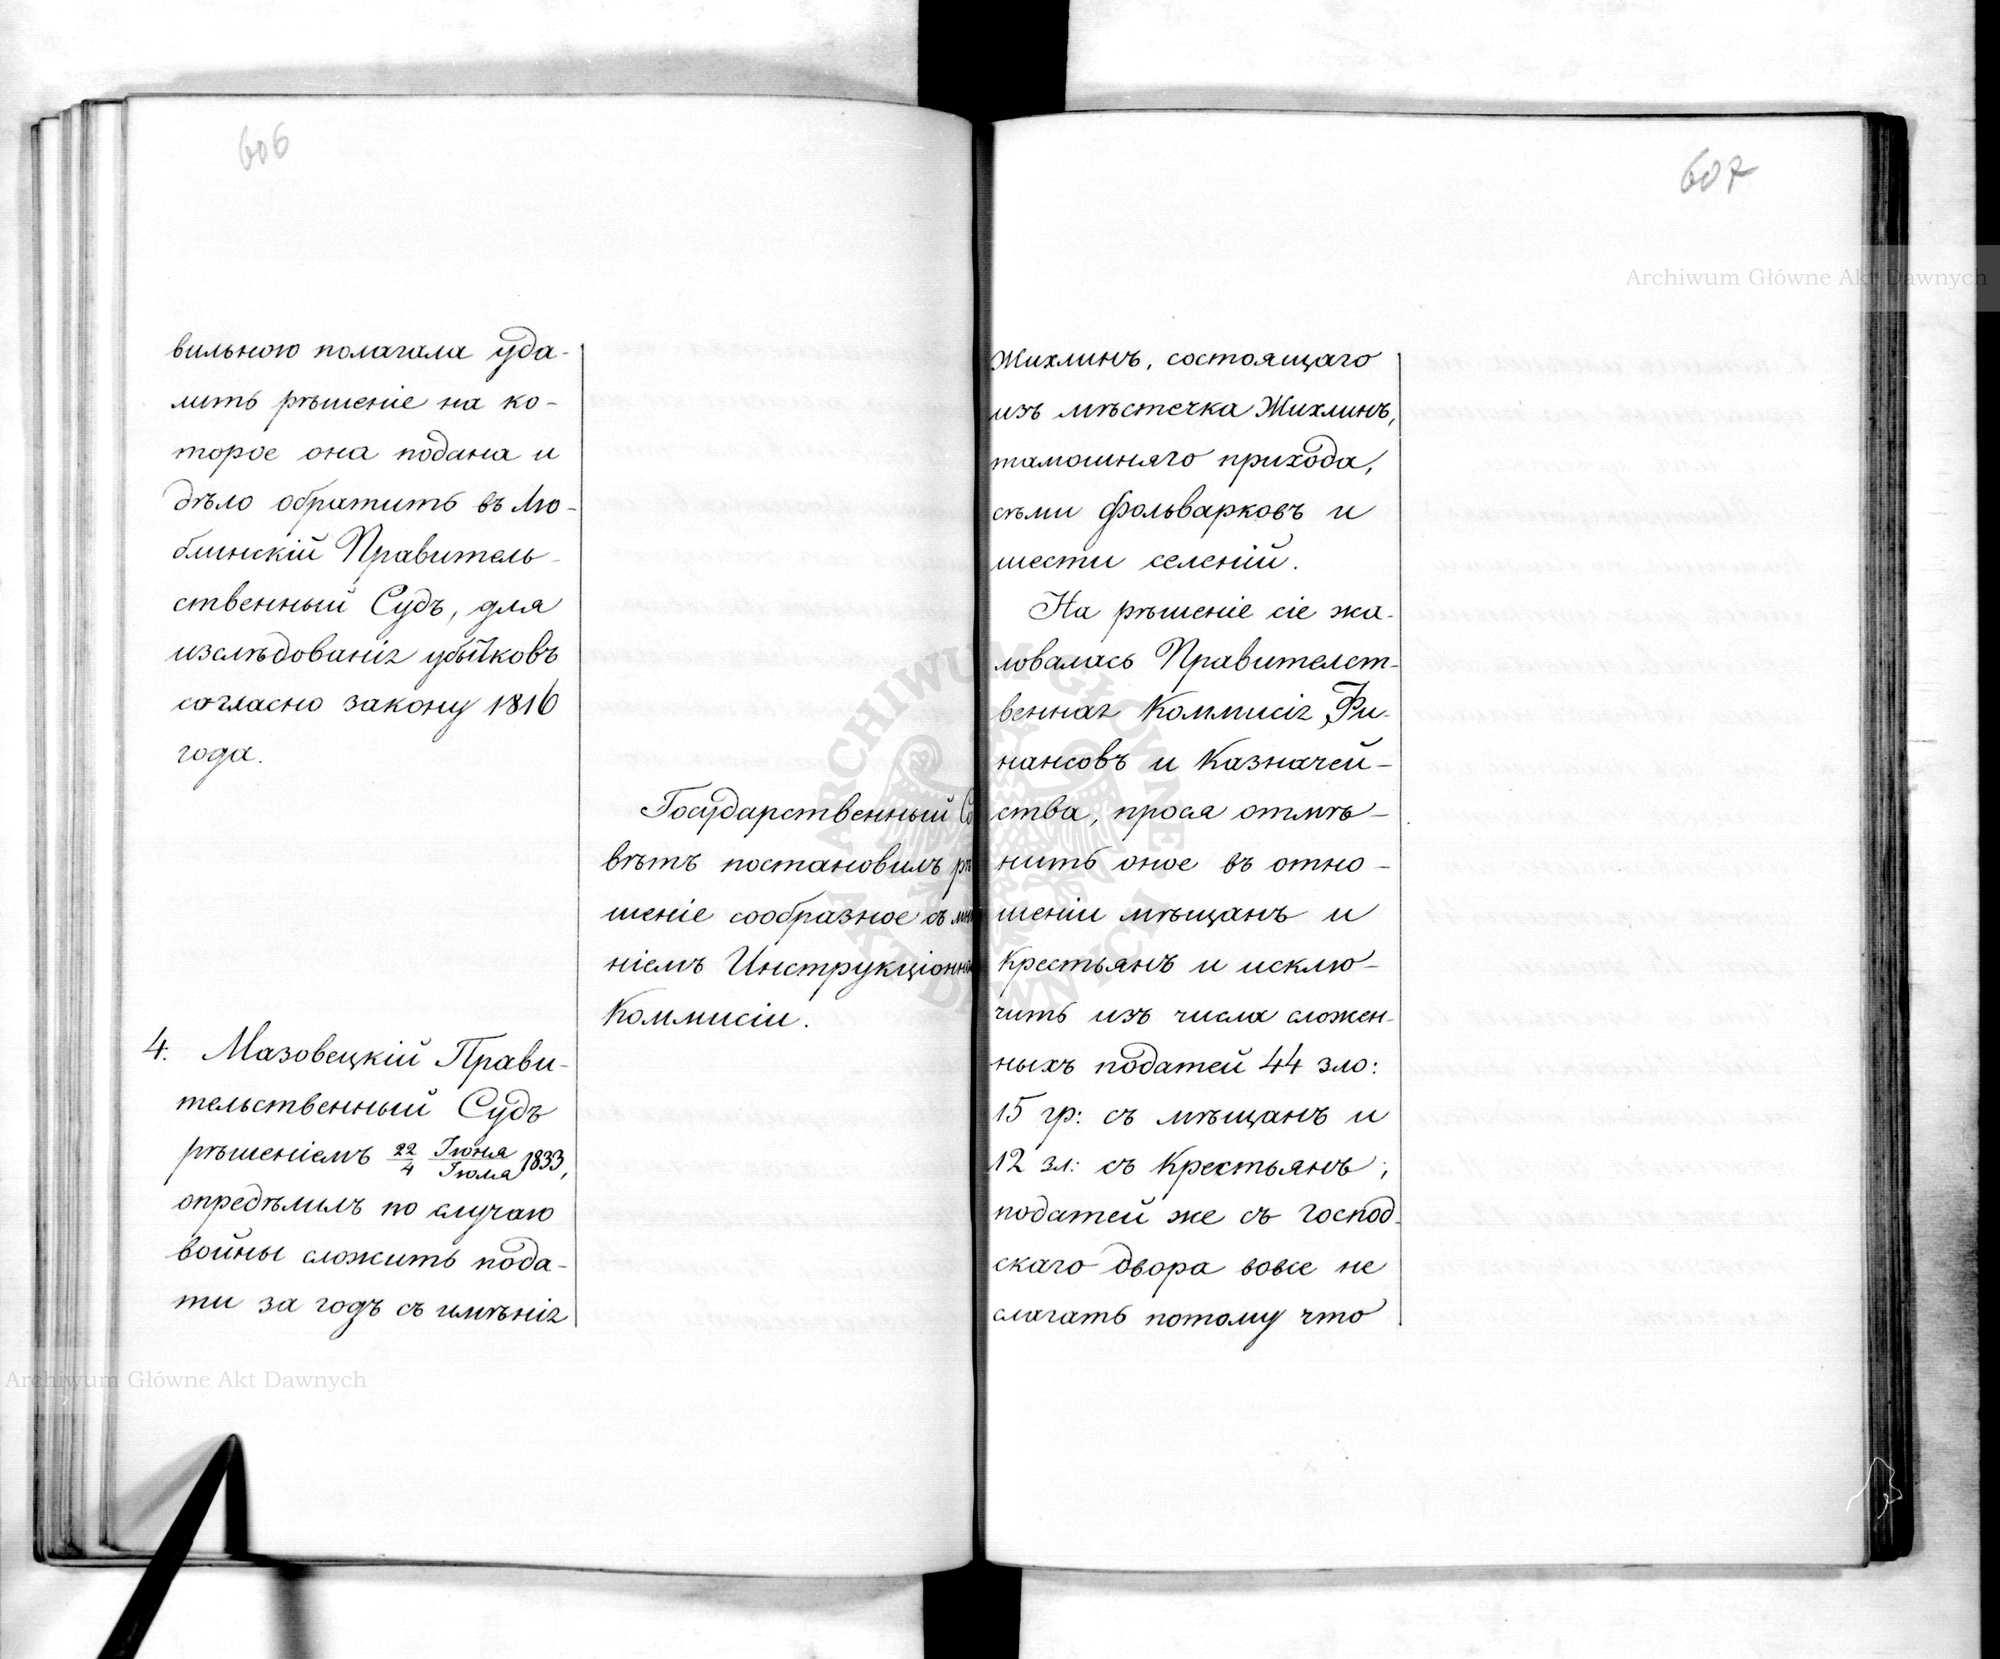 606
вильною полагала уда-
лить рѣшеніе на ко-
торое она подана и
дѣло обратить въ Лю-
блинскій Правитель-
ственный Судъ, для
изслѣдованія убытковъ
согласно закону 1816
года.
Государственный Со
вѣтъ постановилъ рѣ
шеніе сообразное съ мнѣ
ніемъ Инструкціонной
Коммисіи.
4. Мазовецкій Прави-
тельственный Судъ
рѣшеніемъ 22/4 Іюня/Іюля 1833,
опредѣлилъ по случаю
войны сложить пода-
ти за годъ съ имѣнія
607
Жихлинъ, состоящаго
изъ мѣстечка Жихлинъ,
тамошняго прихода,
сѣми фольварковъ и
шести селеній.
На рѣшеніе сіе жа-
ловалась Правителст-
венная Коммисія Фи-
нансовъ и Казначей-
ства, прося отмѣ-
нить оное въ отно-
шеніи мѣщанъ и
Крестьянъ и исклю-
чить изъ числа сложен-
ныхъ податей 44 зло:
15 гр: съ мѣщанъ и
12 зл: съ Крестьянъ;
податей же съ господ-
скаго двора вовсе не
слагать потому что
Archiwum Główne Akt Dawnych
Archiwum Główne Akt Dawnych
ARCHIWUM GŁÓWNE AKT DAWNYCH